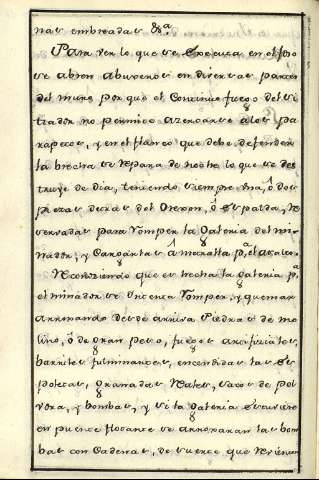 nas embreadas &.ª
Para ver lo que se executa en el foso
se abren abujeros en diversas partes
del muro por que el Continuo fuego del si
tiador no permite asomarse a los pa
rapetos, y en el flanco que debe defender
la brecha se repara de noche lo que se des
truye de dia, teniendo siempre una, ó dos
piezas detras del Orejon, ó Espalda, re
servadas para romper la Galeria del mi
nador, y Cargarlas á metralla p.ª el asalto.
Reconociendo que es hecha la galeria p.ª
el minador se intenta romper, y quemar
arrimando desde arriva Piedras de mo
lino, ó de gran peso, fuegos artificiales,
barriles fulminantes, encendidas las Es
poletas, granadas Reales, sacos de pol
vora, y bombas, y si la galeria estuviere
en puente flotante se arrojaran las bom
bas con Cadenas, de suerte que revienten